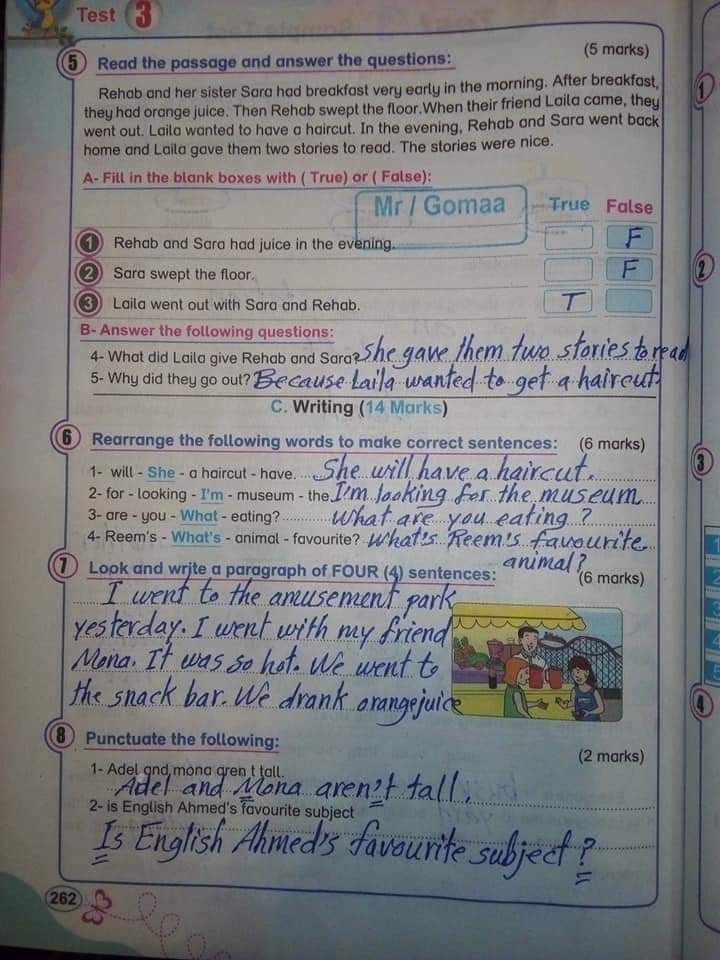 Test 3
5 Read the passage and answer the questions: (5 marks)
Rehab and her sister Sara had breakfast very early in the morning. After breakfast,
they had orange juice. Then Rehab swept the floor.When their friend Laila came, they
went out. Laila wanted to have a haircut. In the evening, Rehab and Sara went back
home and Laila gave them two stories to read. The stories were nice.
A- Fill in the blank boxes with ( True) or ( False):
Mr / Gomaa
True False
1 Rehab and Sara had juice in the evening. F
2 Sara swept the floor. F
3 Laila went out with Sara and Rehab. T
B- Answer the following questions:
4- What did Laila give Rehab and Sara? She gave them two stories to read
5- Why did they go out? Because Laila wanted to get a haircut.
C. Writing (14 Marks)
6 Rearrange the following words to make correct sentences: (6 marks)
1- will - She - a haircut - have. She will have a haircut.
2- for - looking - I'm - museum - the I'm looking for the museum
3- are - you - What - eating? What are you eating ?
4- Reem's - What's - animal - favourite? What's Reem's favourite
animal?
7 Look and write a paragraph of FOUR (4) sentences: (6 marks)
I went to the amusement park
yesterday. I went with my friend
Mona. It was so hot. We went to
the snack bar. We drank orange juice
8 Punctuate the following: (2 marks)
1- Adel and mona aren t tall.
Adel and Mona aren't tall.
2- is English Ahmed's favourite subject
Is English Ahmed's favourite subject ?
262
1
2
3
1
2
3
4
5
4